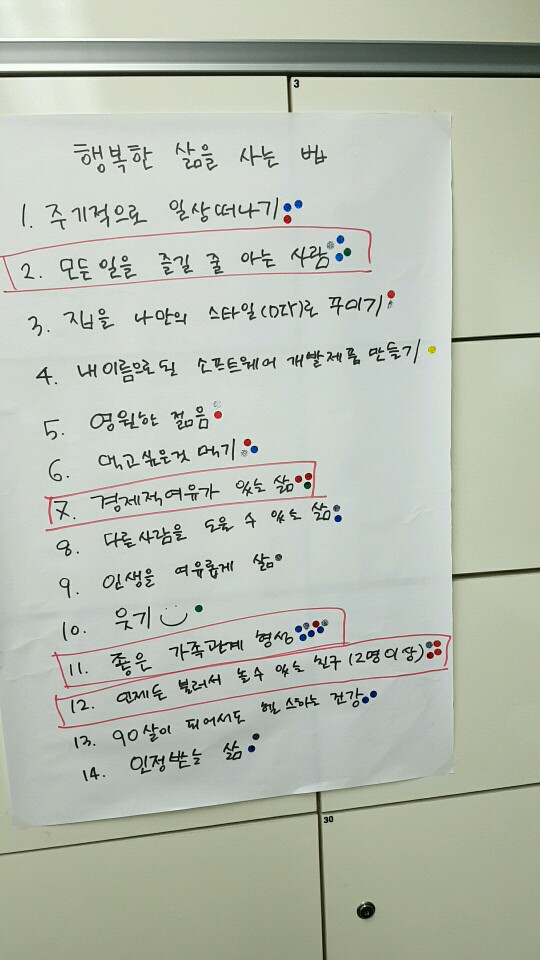 3
행복한 삶을 사는 법
1. 주기적으로 일상떠나기
2. 모든일을 즐길 줄 아는 사람
3. 집을 나만의 스타일(DIY)로 꾸미기
4. 내이름으로된 소프트웨어 개발제품 만들기
5. 영원한 젊음
6. 먹고싶은것 먹기
7. 경제적여유가 있는 삶
8. 다른사람을 도울 수 있는 삶
9. 인생을 여유롭게 삶
10. 웃기
11. 좋은 가족관계 형성
12. 언제든 불러서 놀수 있는 친구 (2명이상)
13. 90살이 되어서도 헬스하는 건강
14. 인정받는 삶
30